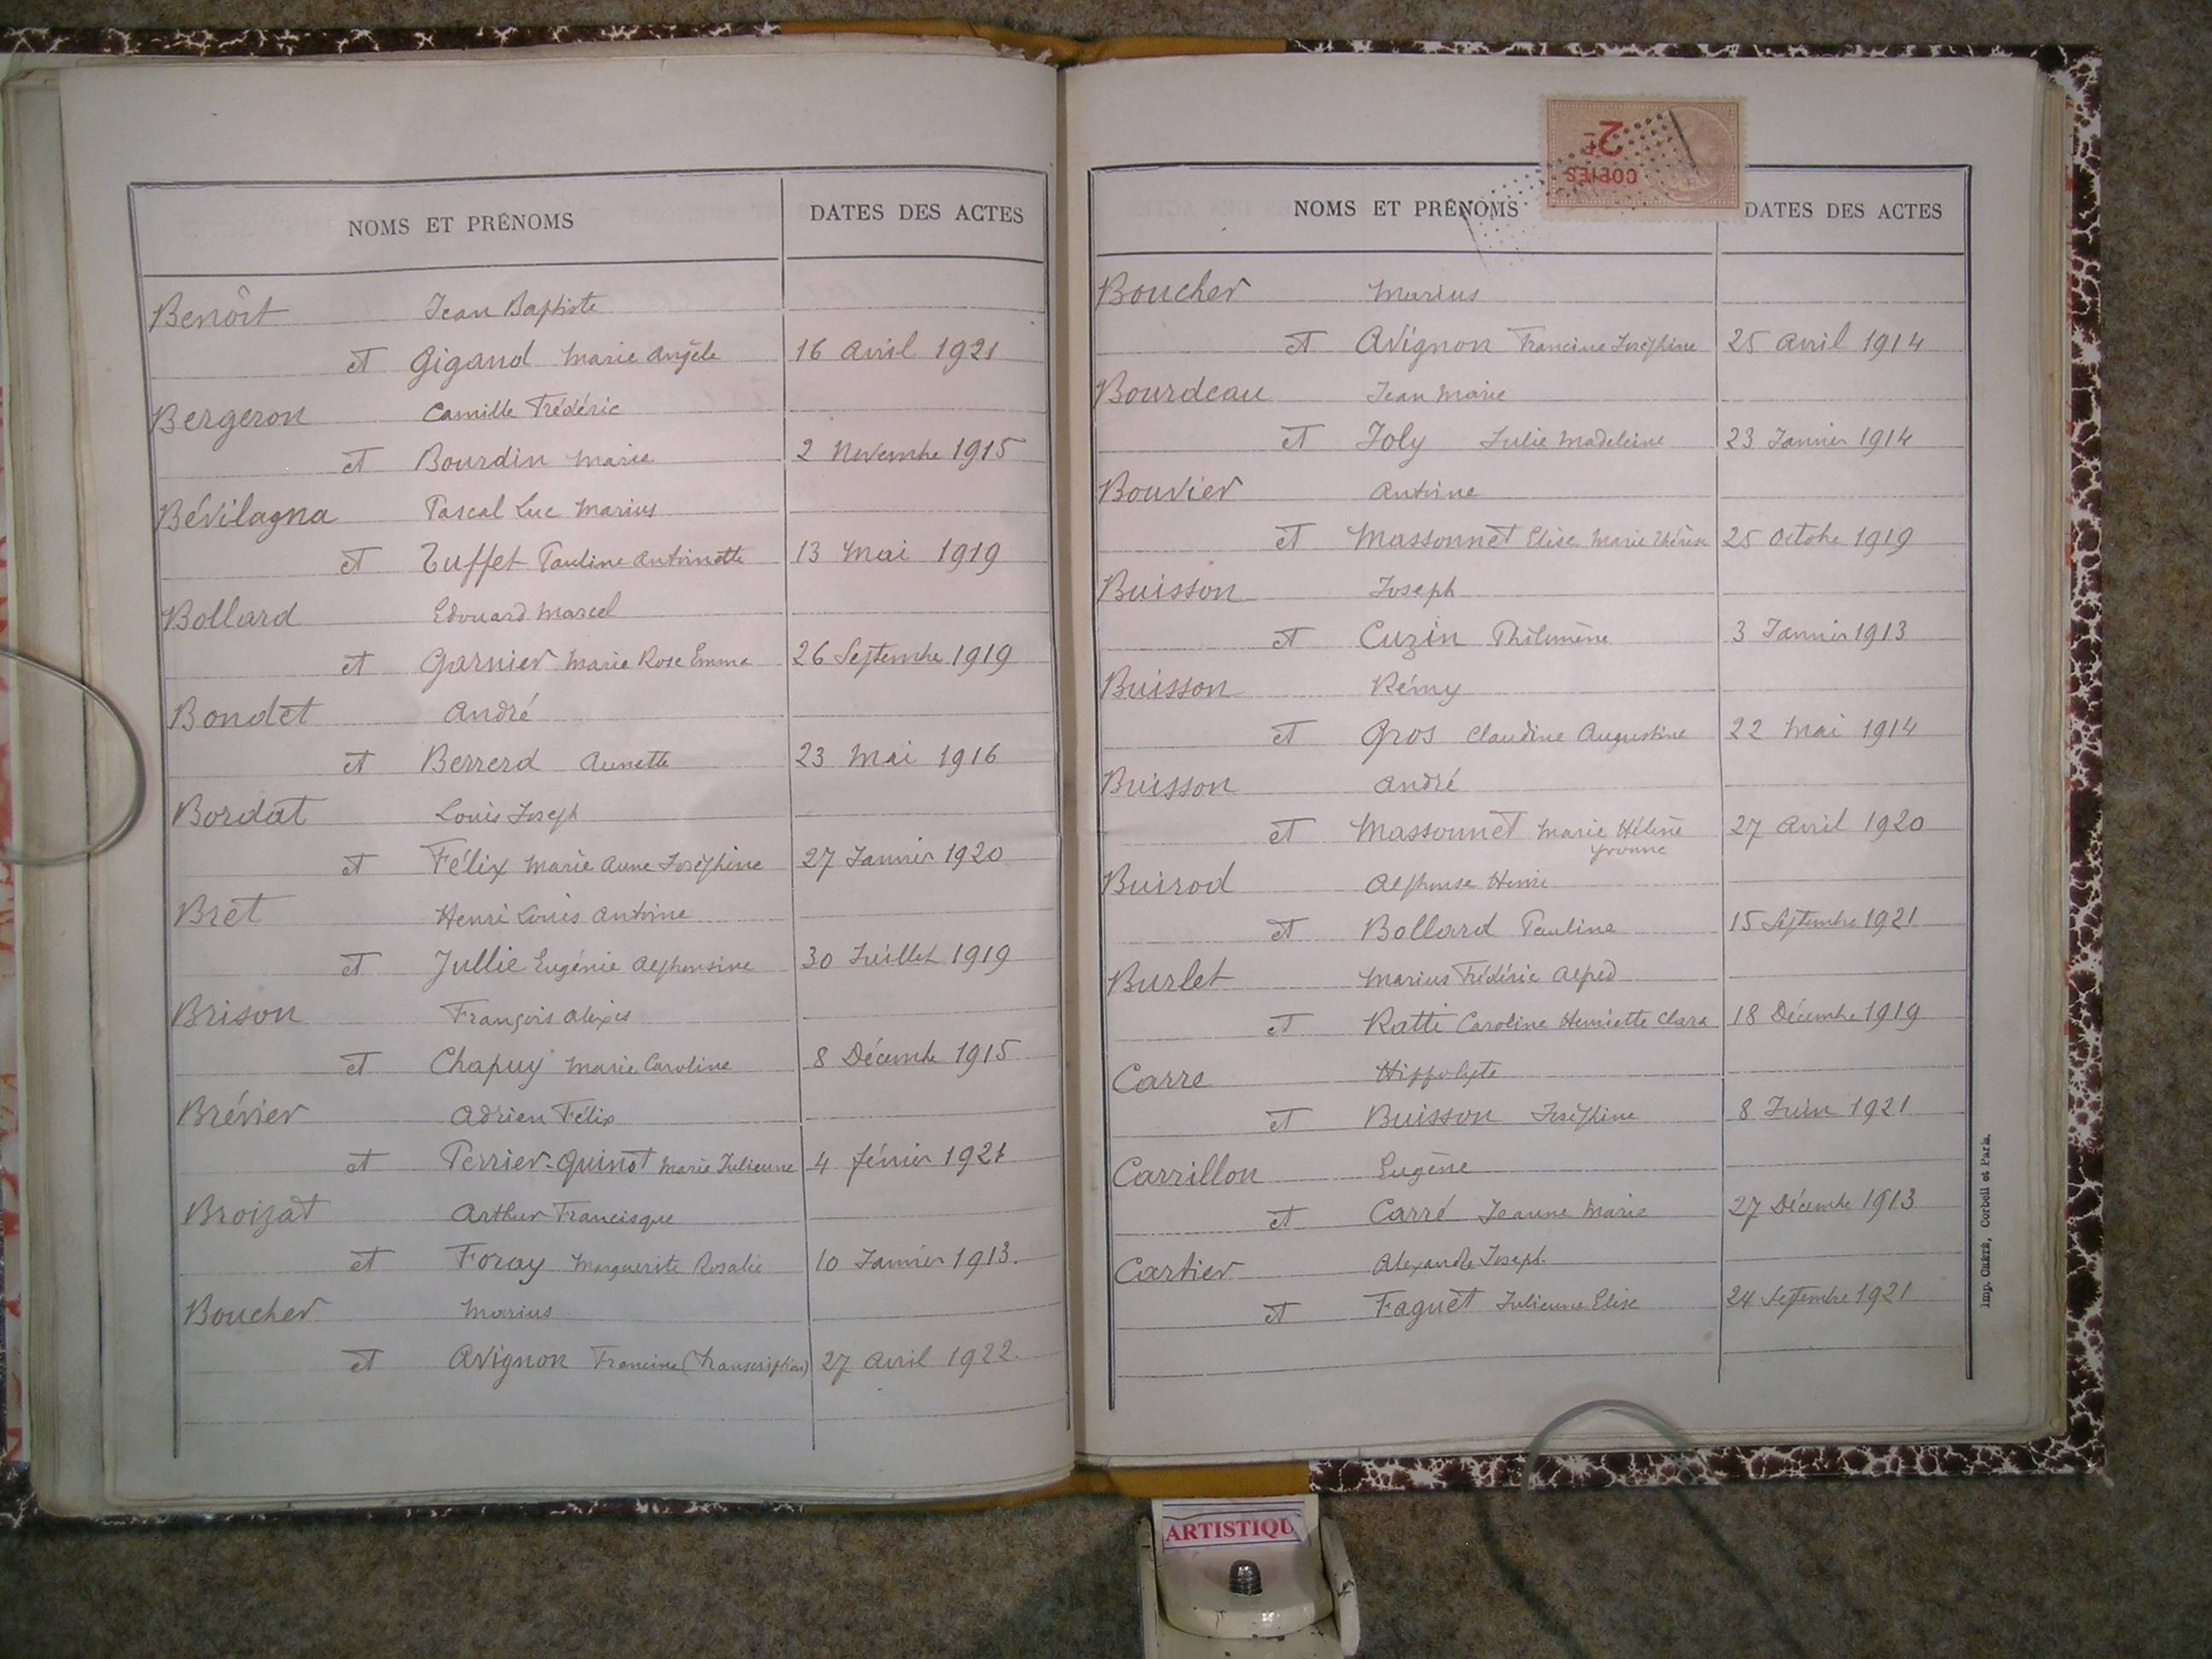 NOMS ET PRÉNOMS DATES DES ACTES
Benoît Jean Baptiste
et Gigand Marie Angèle 16 Avril 1921
Bergeron Camille Frédéric
et Bourdin Marie 2 Novembre 1915
Bévilaqna Pascal Luc Marius
et Tuffet Pauline Antoinette 13 Mai 1919
Bollard Edouard Marcel
et Garnier Marie Rose Emma 26 Septembre 1919
Bondet André
et Berrerd Annette 23 Mai 1916
Bordat Louis Joseph
et Félix Marie Anne Joséphine 27 Janvier 1920
Bret Henri Louis Antoine
et Jullie Eugénie Alphonsine 30 Juillet 1919
Brison François Alexis
et Chapuy Marie Caroline 8 Décembre 1915
Brévier Adrien Félix
et Perrier-Quinot Marie Julienne 4 février 1921
Broizat Arthur Francisque
et Foray Marguerite Rosalie 10 Janvier 1913.
Boucher Marius
et Avignon Francine (transcription) 27 Avril 1922.
COPIES
2F
NOMS ET PRÉNOMS DATES DES ACTES
Boucher Marius
et Avignon Francine Joséphine 25 Avril 1914
Bourdeau Jean Marie
et Joly Julie Madeleine 23 Janvier 1914
Bouvier Antoine
et Massonnet Elise Marie Thérèse 25 Octobre 1919
Buisson Joseph
et Cuzin Philomène 3 Janvier 1913
Buisson Rémy
et Gros Claudine Augustine 22 Mai 1914
Buisson André
et Massonnet Marie Hélène 27 Avril 1920
Yvonne
Buirod Alphonse Henri
et Bollard Pauline 15 Septembre 1921
Burlet Marius Frédéric Alfred
et Ratti Caroline Henriette Clara 18 Décembre 1919
Carre Hippolyte
et Buisson Joséphine 8 Juin 1921
Carrillon Eugène
et Carré Jeanne Marie 27 Décembre 1913
Cartier Alexandre Joseph
et Faguet Julienne Elise 24 Septembre 1921
Imp. CRÉTÉ, Corbeil et Paris.
ARTISTIQU